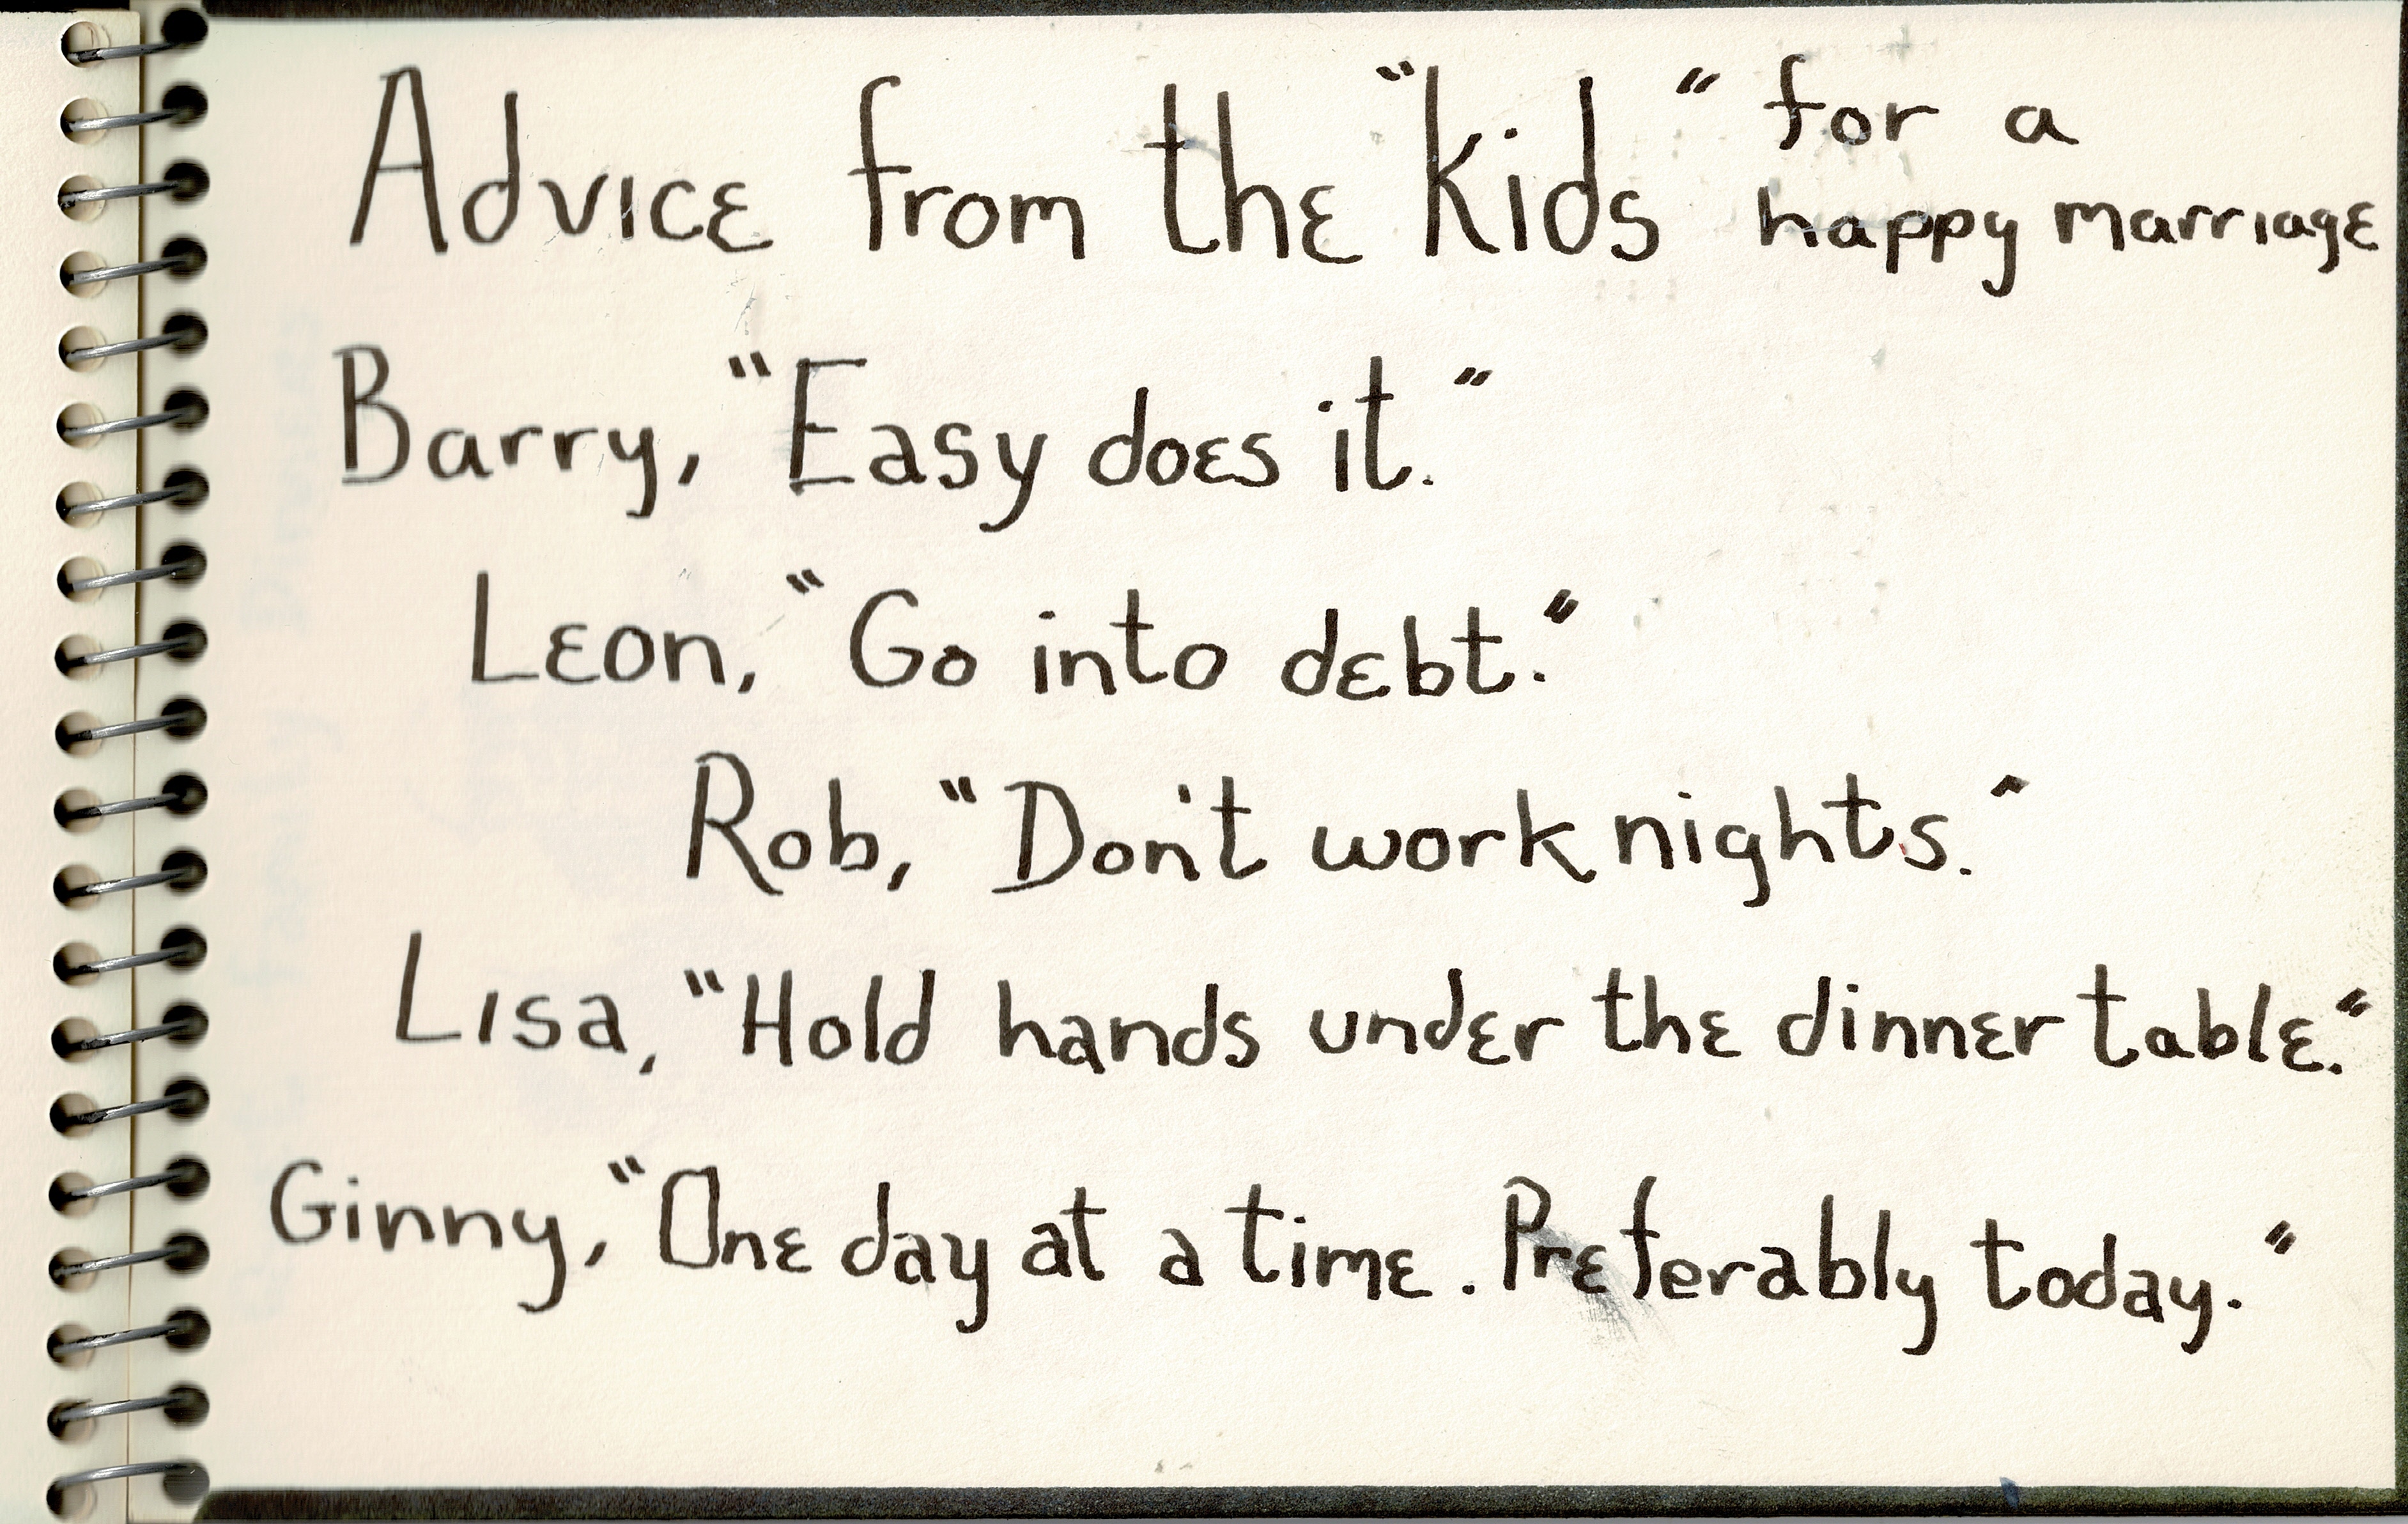 Advice from the "kids" for a
happy marriage
Barry, "Easy does it."
Leon, "Go into debt."
Rob, "Don't work nights."
Lisa, "Hold hands under the dinner table."
Ginny, "One day at a time. Preferably today."